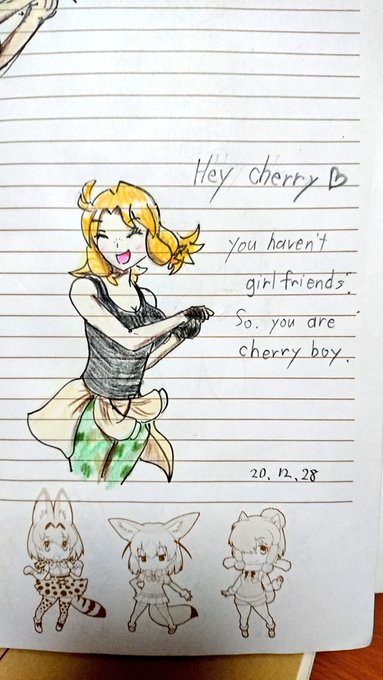 Hey cherry♡
you haven't
girlfriends.
So. you are
cherry boy.
20.12.28